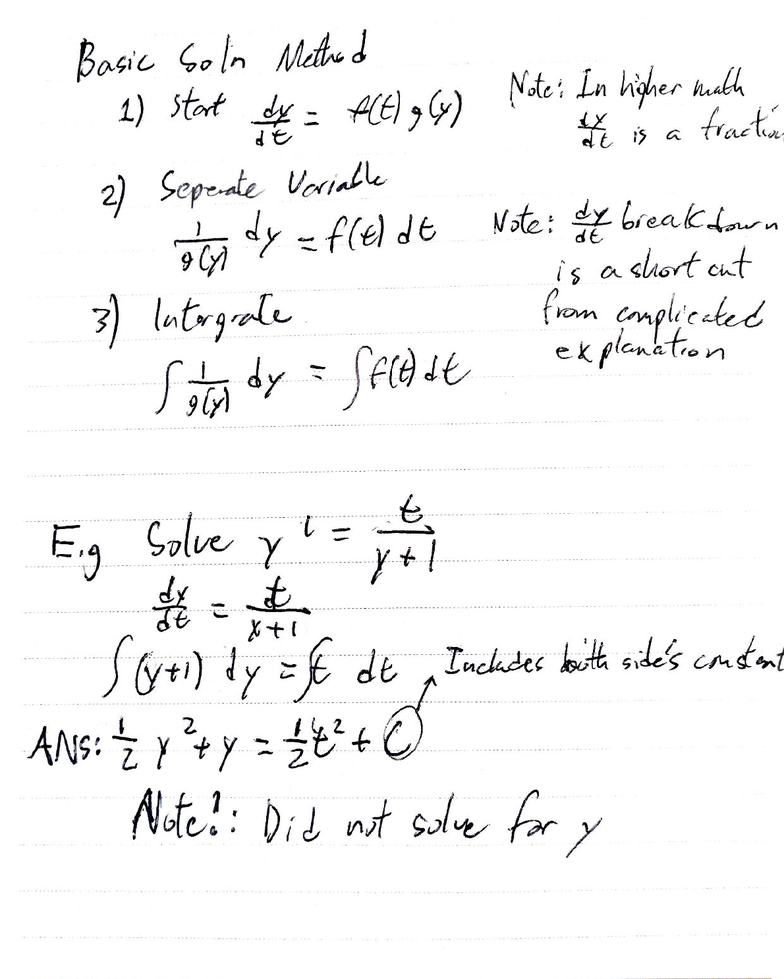 Basic Soln Method
1) Start dy/dt = f(t) g(y)
Note: In higher math
dy/dt is a fractio
2) Seperate Variable
1/g(y) dy = f(t) dt
Note: dy/dt breakdown
is a short cut
from complicated
explanation
3) Intergrate
∫ 1/g(y) dy = ∫ f(t) dt
E.g Solve y' = t/(y+1)
dy/dt = t/(y+1)
∫ (y+1) dy = ∫ t dt
Includes both side's constant
ANS: 1/2 y² + y = 1/2 t² + C
Note!: Did not solve for y